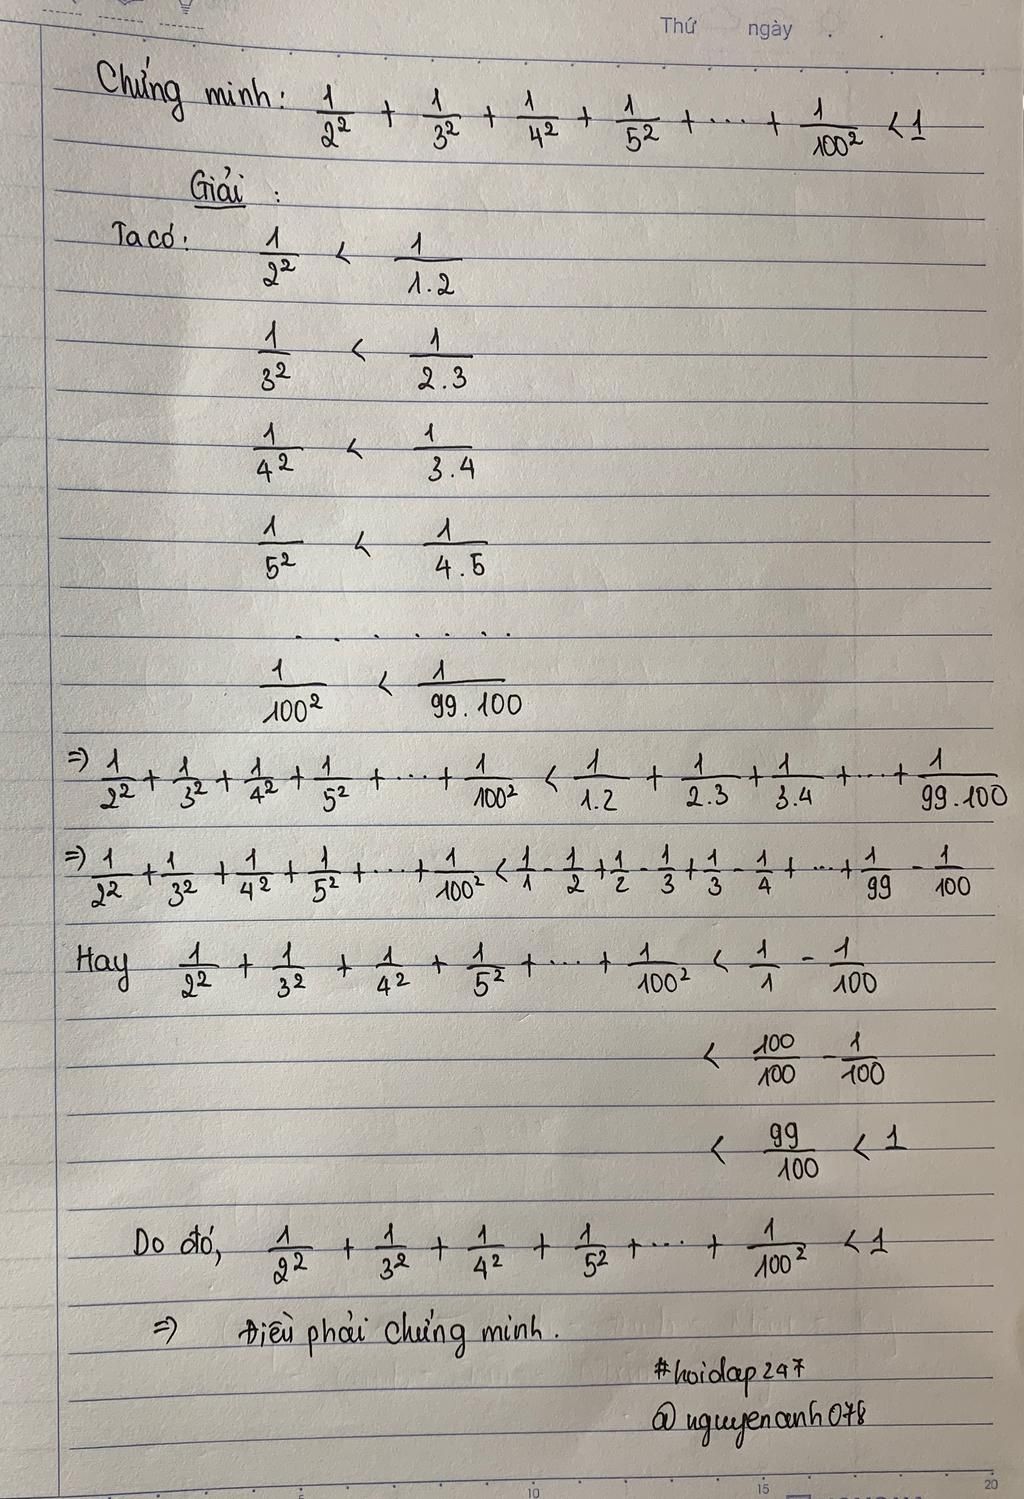 Thứ ngày . .
Chứng minh: 1/2² + 1/3² + 1/4² + 1/5² + ... + 1/100² < 1
Giải :
Ta có: 1/2² < 1/1.2
1/3² < 1/2.3
1/4² < 1/3.4
1/5² < 1/4.5
. . . . . . .
1/100² < 1/99.100
=> 1/2² + 1/3² + 1/4² + 1/5² + ... + 1/100² < 1/1.2 + 1/2.3 + 1/3.4 + ... + 1/99.100
=> 1/2² + 1/3² + 1/4² + 1/5² + ... + 1/100² < 1/1 - 1/2 + 1/2 - 1/3 + 1/3 - 1/4 + ... + 1/99 - 1/100
Hay 1/2² + 1/3² + 1/4² + 1/5² + ... + 1/100² < 1/1 - 1/100
< 100/100 - 1/100
< 99/100 < 1
Do đó, 1/2² + 1/3² + 1/4² + 1/5² + ... + 1/100² < 1
=> Điều phải chứng minh.
#hoidap247
@nguyenanh078
10 15 20